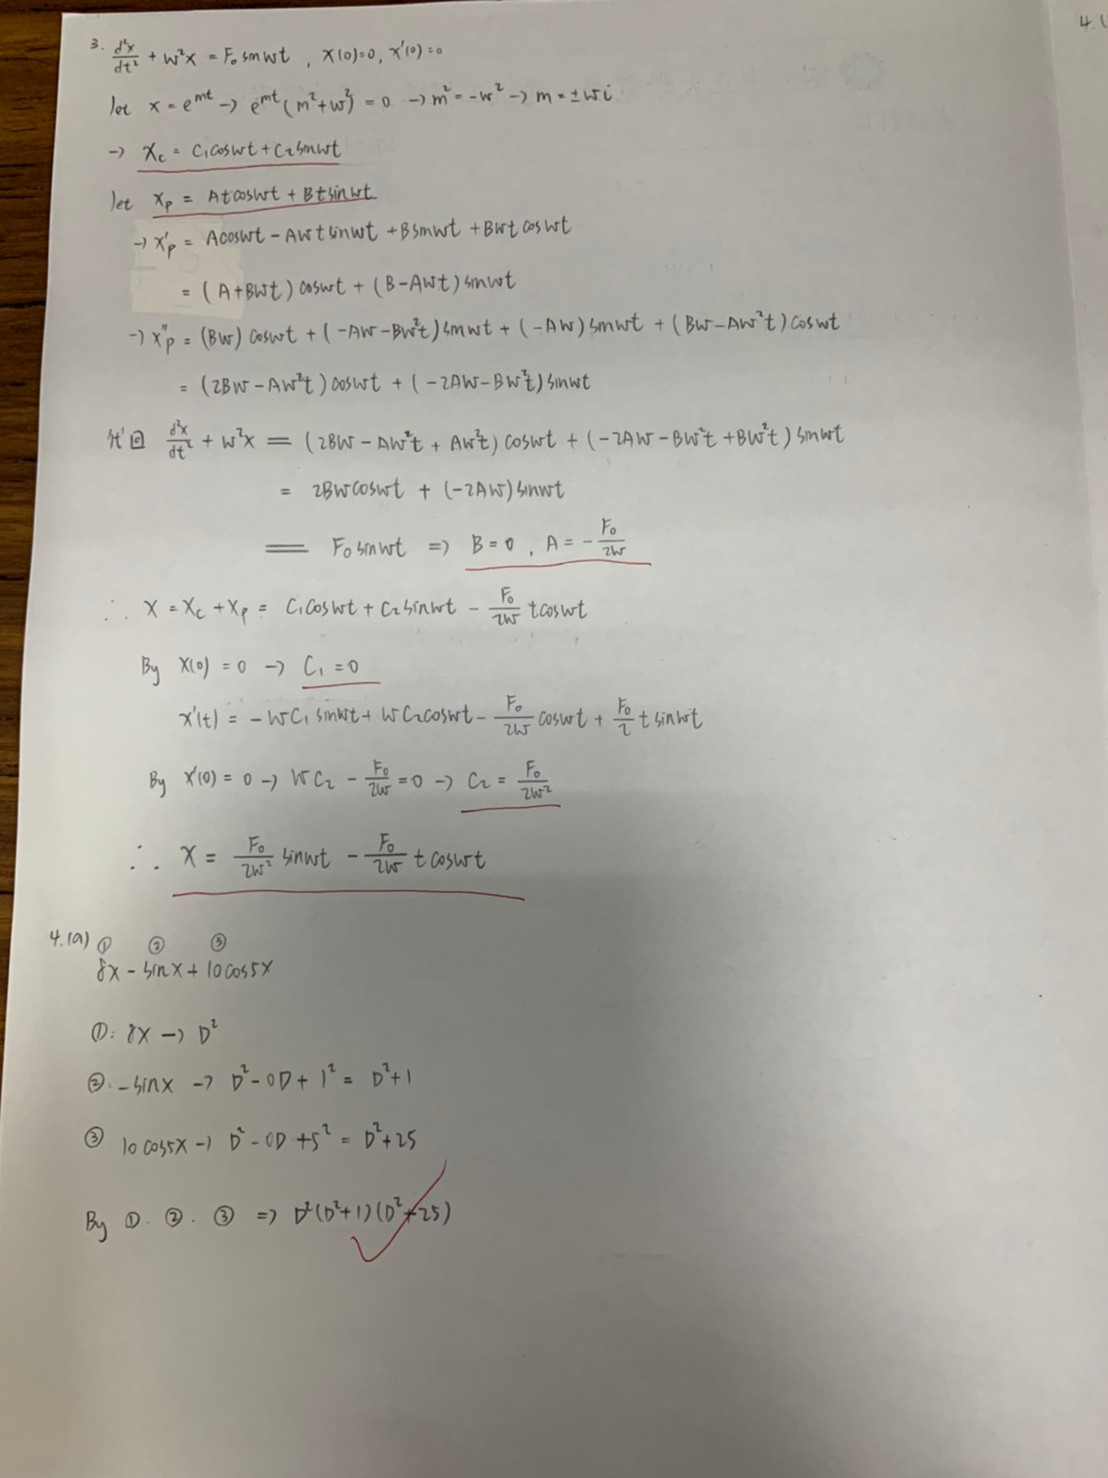 4.(
3. d²x/dt² + w²x = F₀ sinwt , x(0)=0, x'(0)=0
let x = e^mt → e^mt (m²+w²) = 0 → m² = -w² → m = ±wi
→ Xc = C₁coswt + C₂sinwt
let xp = Atcoswt + Btsinwt
→ x'p = Acoswt - Awt sinwt + Bsinwt + Bwt coswt
= (A+Bwt) coswt + (B-Awt) sinwt
→ x''p = (Bw) coswt + (-Aw-Bw²t) sinwt + (-Aw) sinwt + (Bw-Aw²t) coswt
= (2Bw-Aw²t) coswt + (-2Aw-Bw²t) sinwt
代回 d²x/dt² + w²x = (2Bw - Aw²t + Aw²t) coswt + (-2Aw - Bw²t + Bw²t) sinwt
= 2Bwcoswt + (-2Aw) sinwt
= F₀ sinwt ⇒ B = 0 , A = - F₀/2w
∴ x = Xc + Xp = C₁coswt + C₂sinwt - F₀/2w tcoswt
By x(0) = 0 → C₁ = 0
x'(t) = -wC₁ sinwt + wC₂coswt - F₀/2w coswt + F₀/2 t sinwt
By x'(0) = 0 → wC₂ - F₀/2w = 0 → C₂ = F₀/2w²
∴ x = F₀/2w² sinwt - F₀/2w t coswt
4.(a) ① ② ③
8x - sinx + 10cos5x
①: 8x → D²
②. -sinx → D² - 0D + 1² = D²+1
③ 10cos5x → D² - 0D + 5² = D²+25
By ①. ②. ③ ⇒ D²(D²+1)(D²+25)